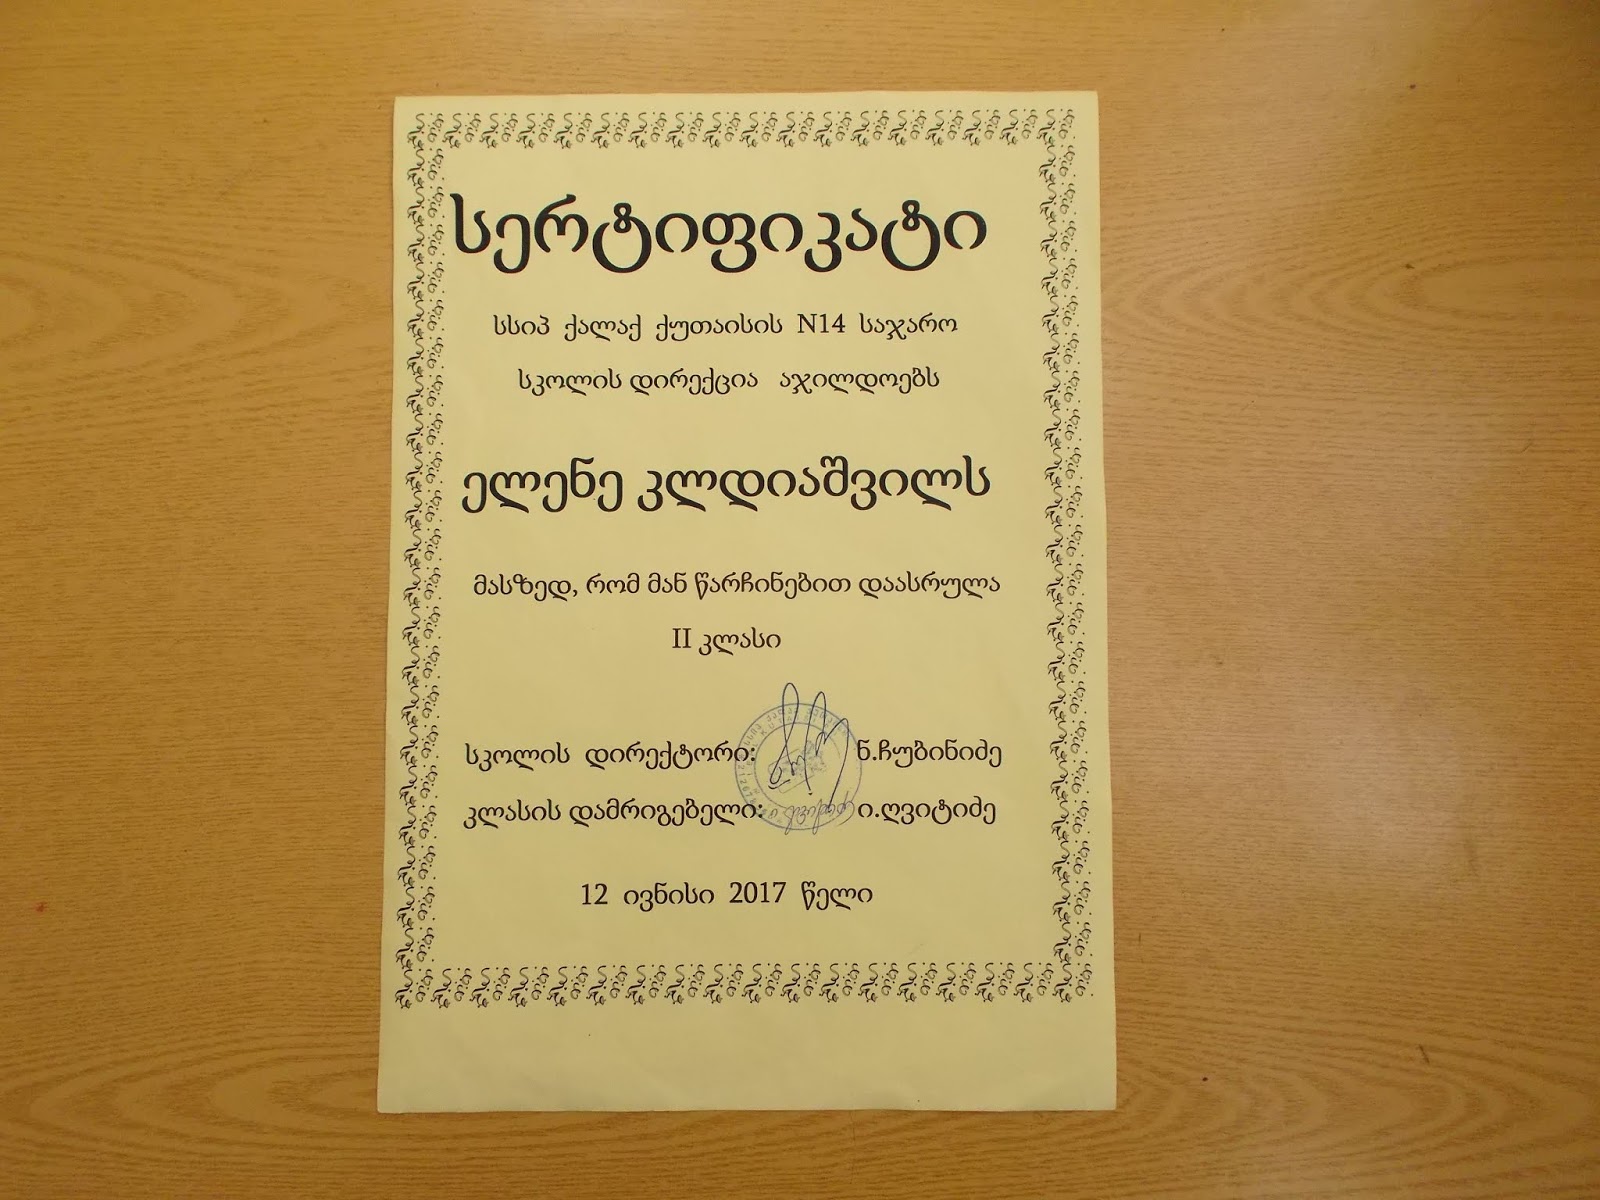 სერტიფიკატი
სსიპ ქალაქ ქუთაისის N14 საჯარო
სკოლის დირექცია აჯილდოებს
ელენე კლდიაშვილს
მასზედ, რომ მან წარჩინებით დაასრულა
II კლასი
სკოლის დირექტორი: ნ.ჩუბინიძე
კლასის დამრიგებელი: ი.ღვიტიძე
12 ივნისი 2017 წელი